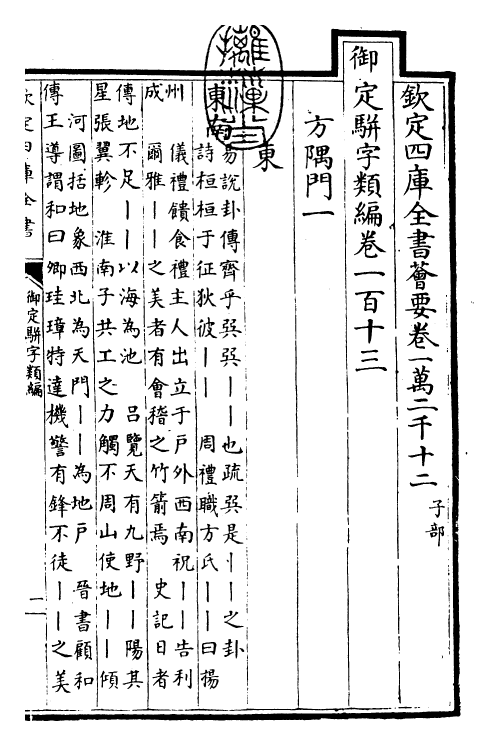 欽定四庫全書薈要卷一萬二千十二 子部
御定駢字類編卷一百十三
方隅門一
東
東南
易說卦傳齊乎巽巽丨丨也疏巽是丨丨之卦
詩桓桓于征狄彼丨丨 周禮職方氏丨丨曰揚
州 儀禮饋食禮主人出立于戶外西南祝丨丨告利
成 爾雅丨丨之美者有會稽之竹箭焉 史記日者
傳地不足丨丨以海為池 呂覽天有九野丨丨陽其
星張翼軫 淮南子共工之力觸不周山使地丨丨傾
河圖括地象西北為天門丨丨為地戶 晉書顧和
傳王導謂和曰卿珪璋特達機警有鋒不徒丨丨之美
欽定四庫全書
御定駢字類編
一